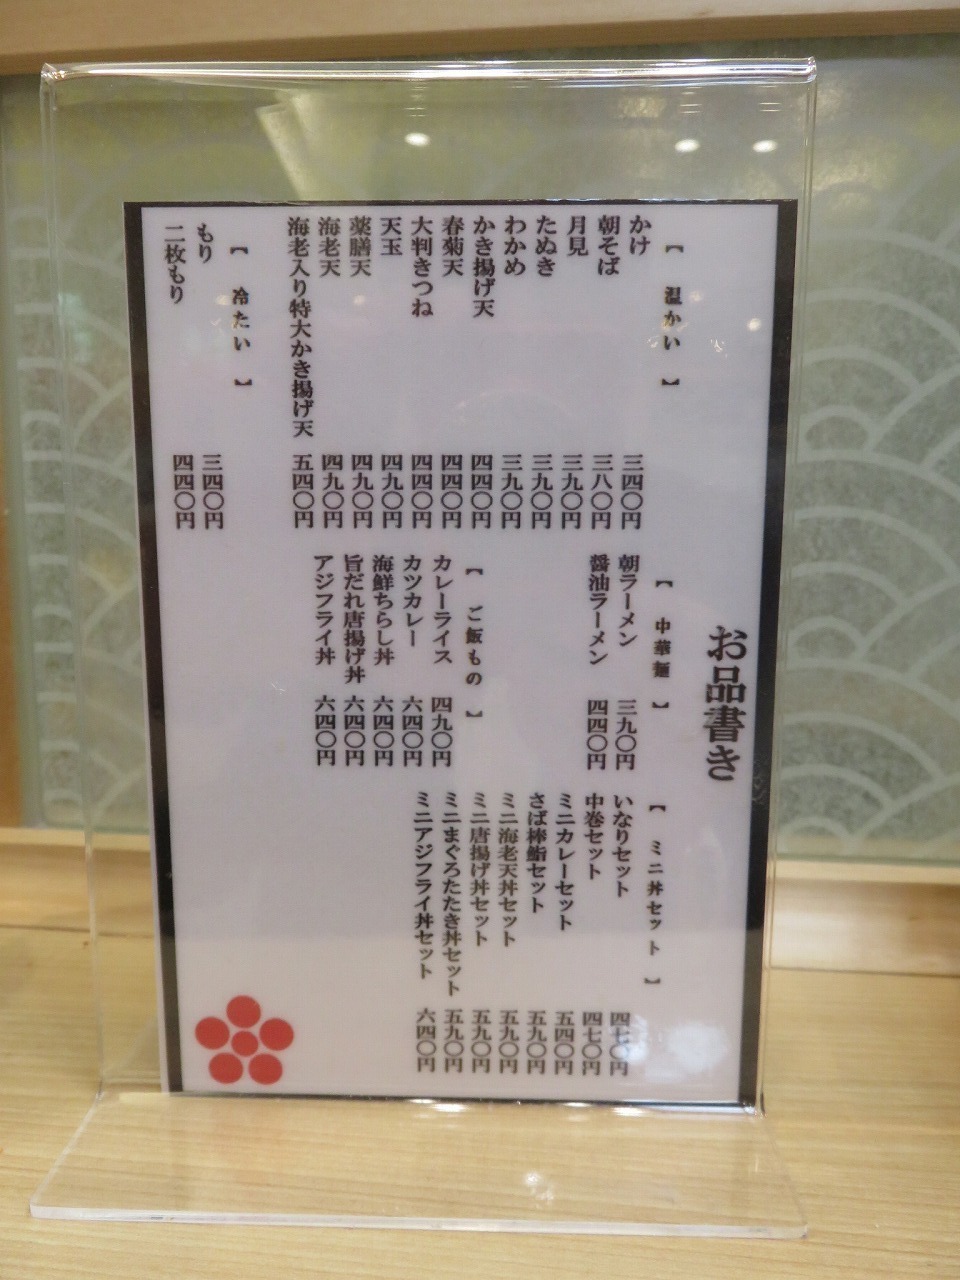 お品書き
【 温かい 】
かけ 三四〇円
朝そば 三八〇円
月見 三九〇円
たぬき 三九〇円
わかめ 三九〇円
かき揚げ天 四四〇円
春菊天 四四〇円
大判きつね 四四〇円
天玉 四九〇円
薬膳天 四九〇円
海老天 四九〇円
海老入り特大かき揚げ天 五四〇円
【 冷たい 】
もり 三四〇円
二枚もり 四四〇円
【 中華麺 】
朝ラーメン 三九〇円
醤油ラーメン 四四〇円
【 ご飯もの 】
カレーライス 四九〇円
カツカレー 六四〇円
海鮮ちらし丼 六四〇円
旨だれ唐揚げ丼 六四〇円
アジフライ丼 六四〇円
【 ミニ丼セット 】
いなりセット 四七〇円
中巻セット 四七〇円
ミニカレーセット 五四〇円
さば棒鮨セット 五九〇円
ミニ海老天丼セット 五九〇円
ミニ唐揚げ丼セット 五九〇円
ミニまぐろたたき丼セット 五九〇円
ミニアジフライ丼セット 六四〇円